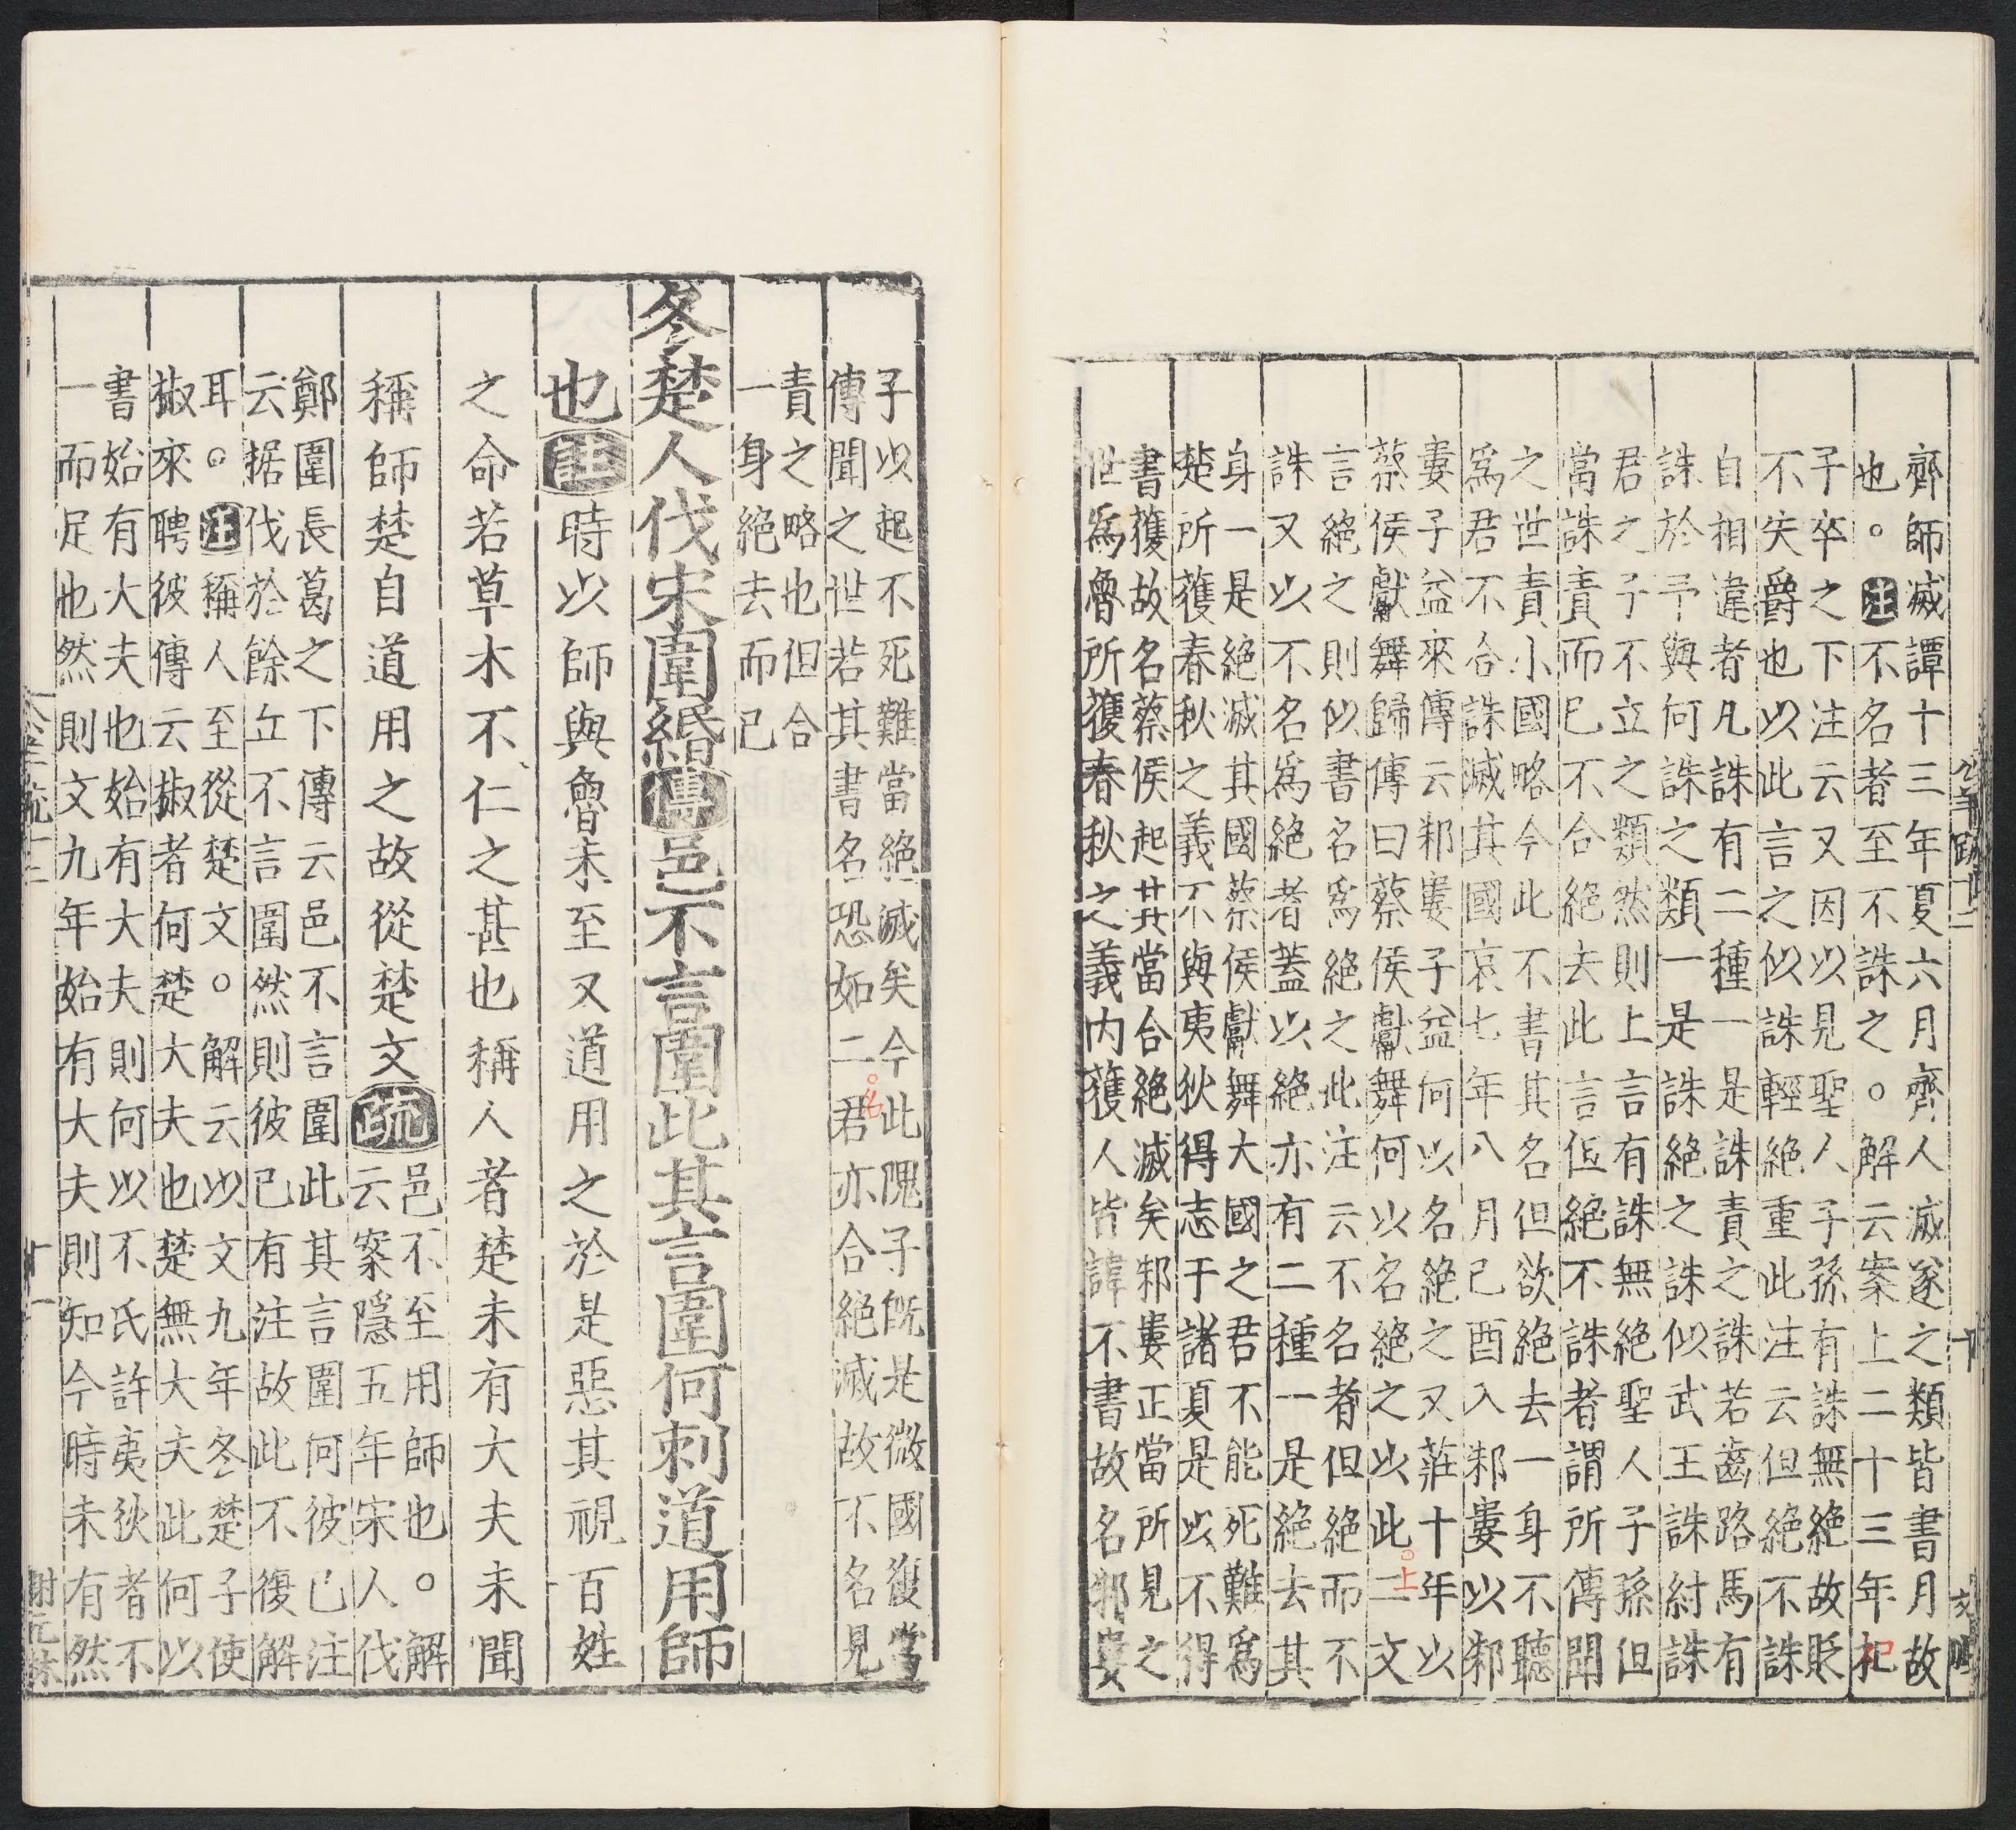 齊師滅譚十三年夏六月齊人滅遂之類皆書月故
也。注不名者至不誅之。解云案上二十三年杞
子卒之下注云又因以見聖人子孫有誅無絶故貶
不失爵也以此言之似誅輕絶重此注云但絶不誅
自相違者凡誅有二種一是誅責之誅若齒路馬有
誅於予與何誅之類一是誅絶之誅似武王誅紂誅
君之子不立之類然則上言有誅無絶聖人子孫但
當誅責而已不合絶去此言但絶不誅者謂所傳聞
之世責小國略今此不書其名但欲絶去一身不聽
爲君不合誅滅其國哀七年八月己酉入邾婁以邾
婁子益來傳云邾婁子益何以名絶之又莊十年以
蔡侯獻舞歸傳曰蔡侯獻舞何以名絶之以此二文
上
言絶之則似書名爲絶之此注云不名者但絶而不
誅又以不名爲絶者蓋以絶亦有二種一是絶去其
身一是絶滅其國蔡侯獻舞大國之君不能死難爲
楚所獲春秋之義不與夷狄得志于諸夏是以不得
書獲故名蔡侯起其當合絶滅矣邾婁正當所見之
世爲魯所獲春秋之義内獲人皆諱不書故名邾婁
子以起不死難當絶滅矣今此隗子旣是微國復當
傳聞之世若其書名恐如二君亦合絶滅故不名見
名
責之略也但合
一身絶去而已
冬楚人伐宋圍緡傳邑不言圍此其言圍何刺道用師
也注時以師與魯未至又道用之於是惡其視百姓
之命若草木不仁之甚也稱人者楚未有大夫未聞
稱師楚自道用之故從楚文疏邑不至用師也。解
云案隱五年宋人伐
鄭圍長葛之下傳云邑不言圍此其言圍何彼已注
云据伐於餘丘不言圍然則彼已有注故此不復解
耳。注稱人至從楚文。解云以文九年冬楚子使
椒來聘彼傳云椒者何楚大夫也楚無大夫此何以
書始有大夫也始有大夫則何以不氏許夷狄者不
一而足也然則文九年始有大夫則知今時未有然
公羊疏十二
十一
謝元林